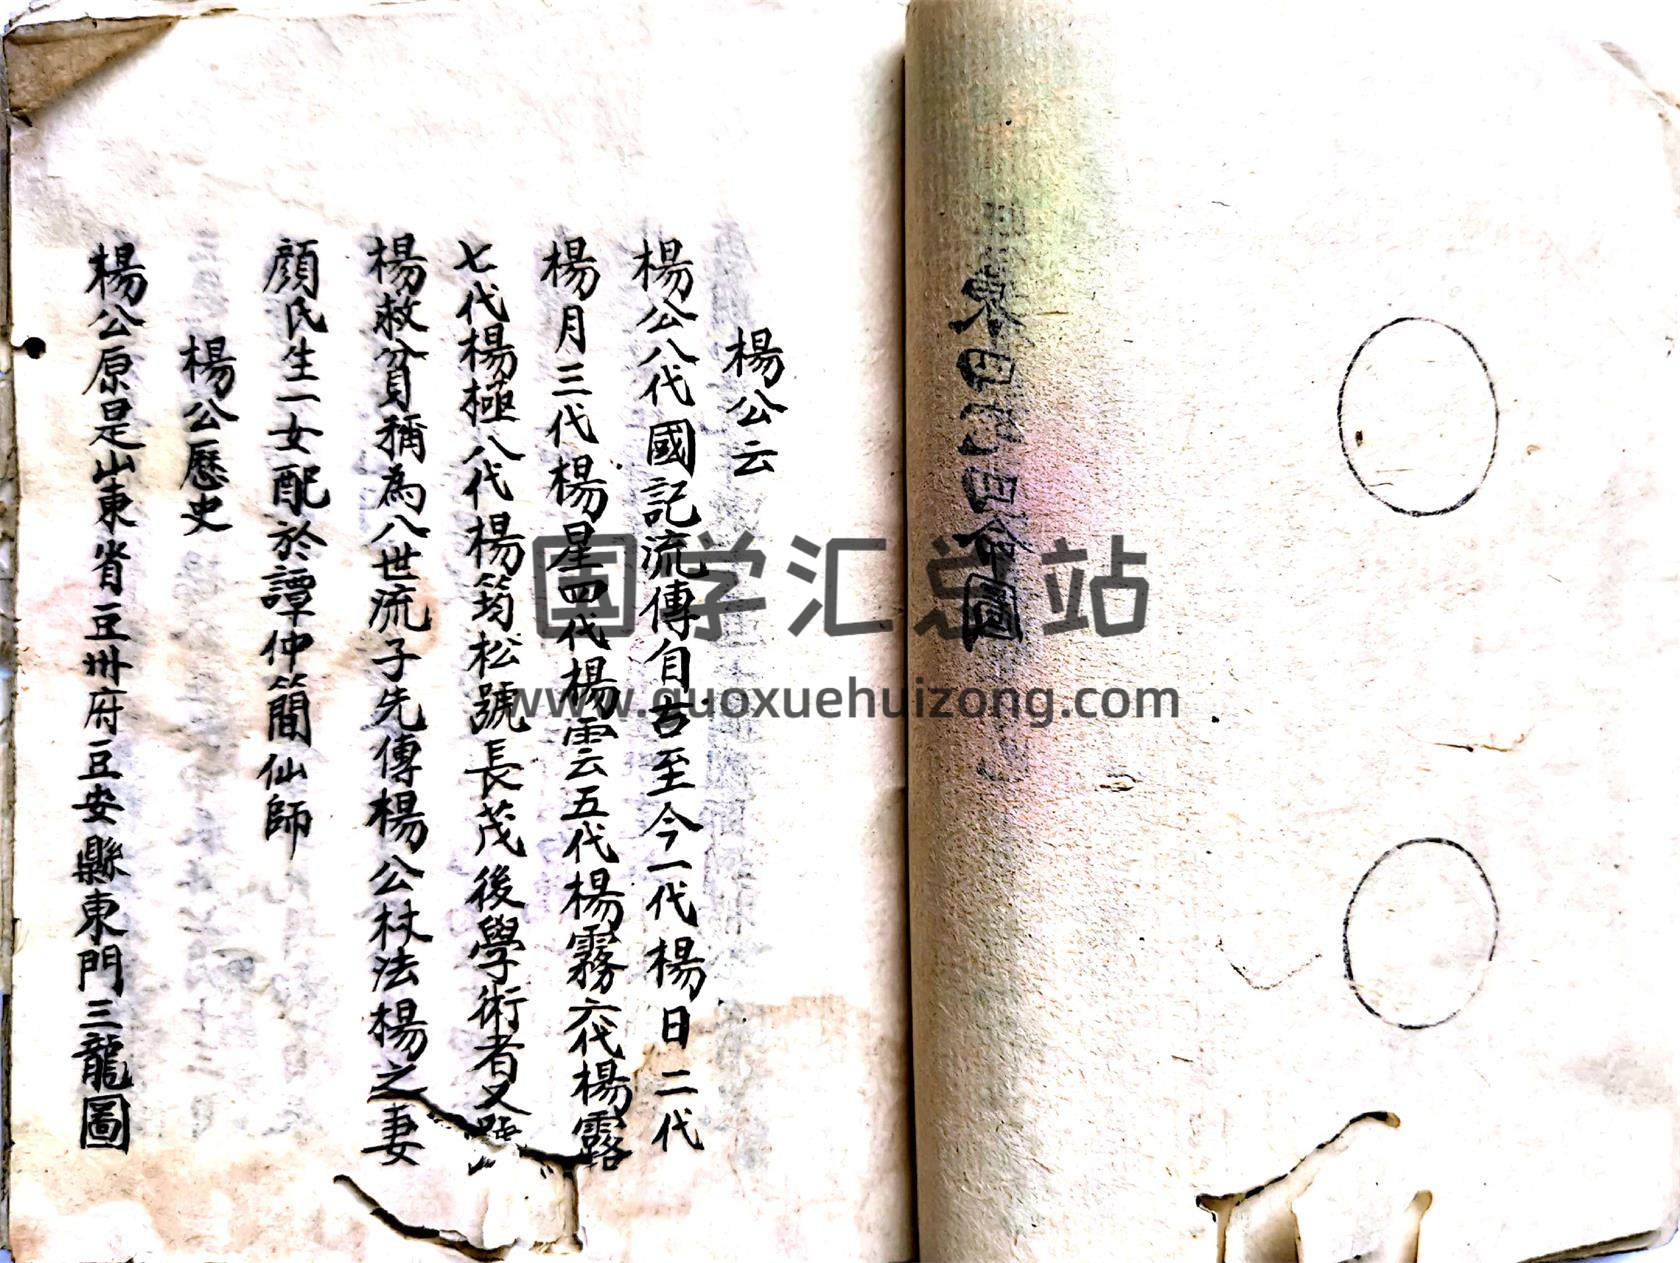 楊公云
楊公八代國記流傳自古至今一代楊日二代
楊月三代楊星四代楊雲五代楊霧六代楊露
七代楊極八代楊筠松號長茂後學術者又
楊救貧稱為八世流子先傳楊公杖法楊之妻
顏氏生一女配於譚仲簡仙師
楊公歷史
楊公原是山東省豆州府豆安縣東門三龍圖
国学汇总站
www.guoxuehuizong.com
四命圖